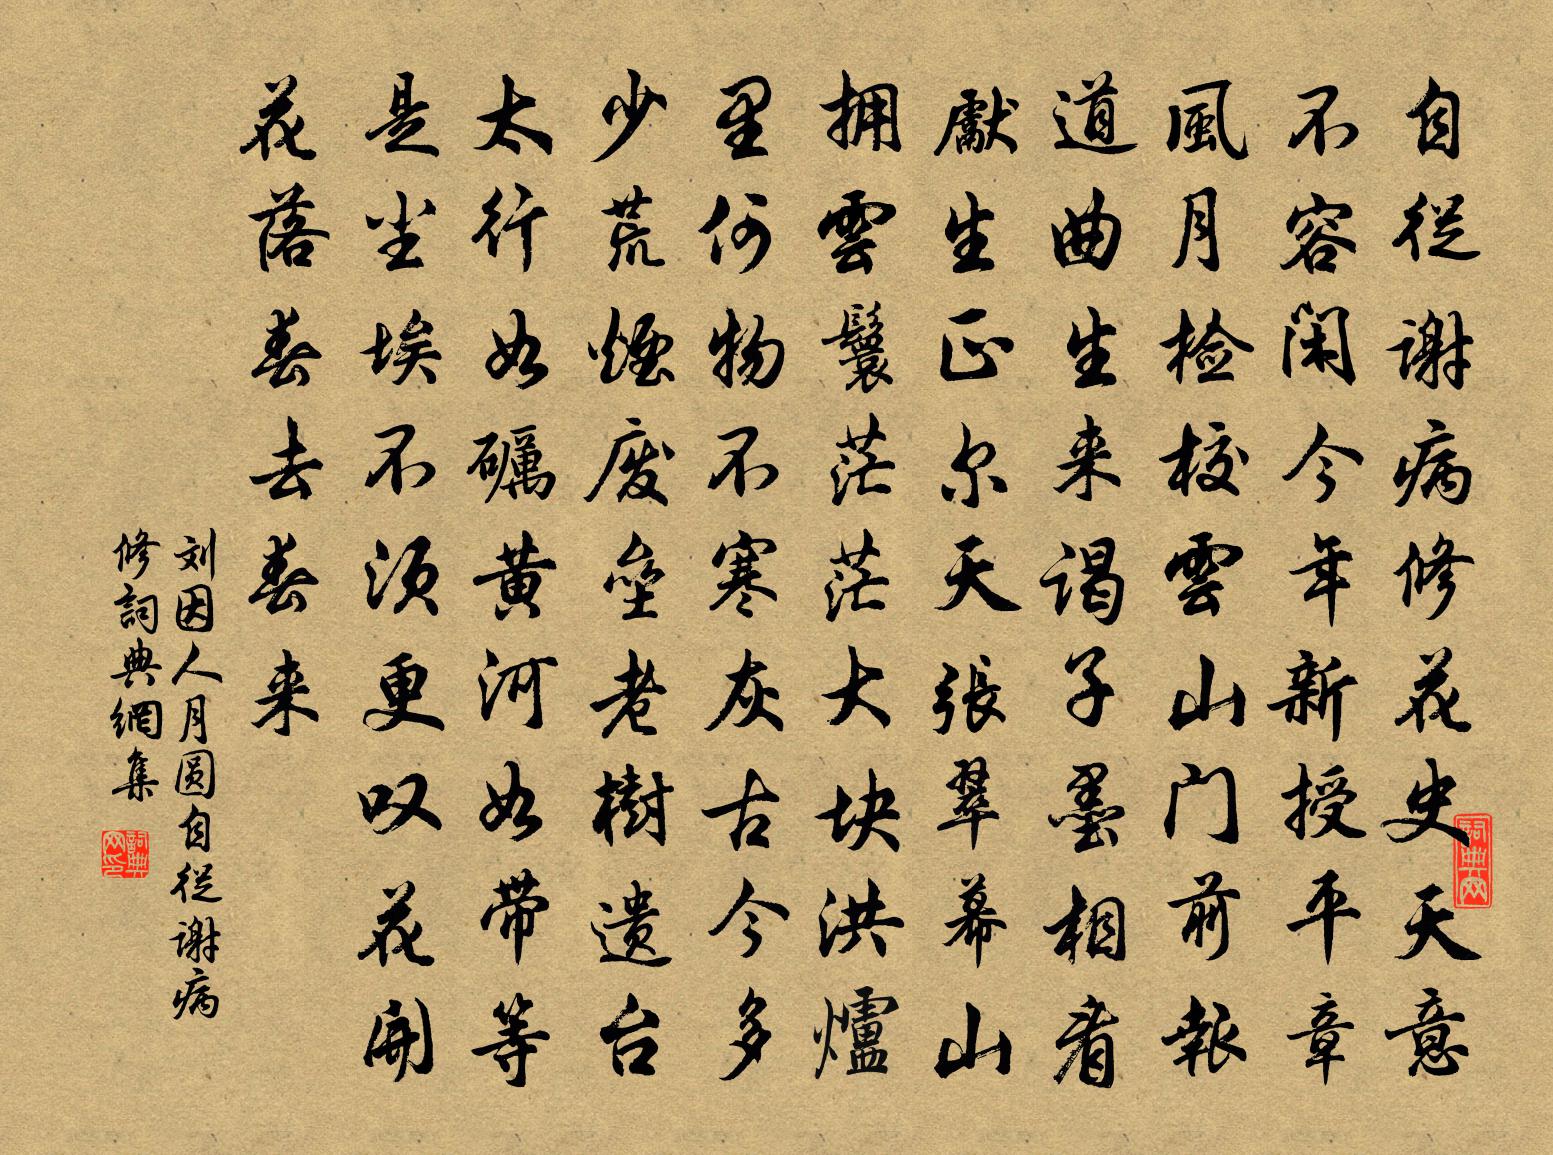 自從谢病修花史天意
不容闲今年新授平章
風月检校雲山门前報
道曲生来谒子墨相看
獻生正尔天張翠幕山
拥雲鬟茫茫大块洪爐
里何物不寒灰古今多
少荒煙废垒老樹遗台
太行如礪黄河如带等
是尘埃不须更叹花開
花落春去春来
刘因人月圆自從谢病
修詞典網集
詞典网
詞典网印